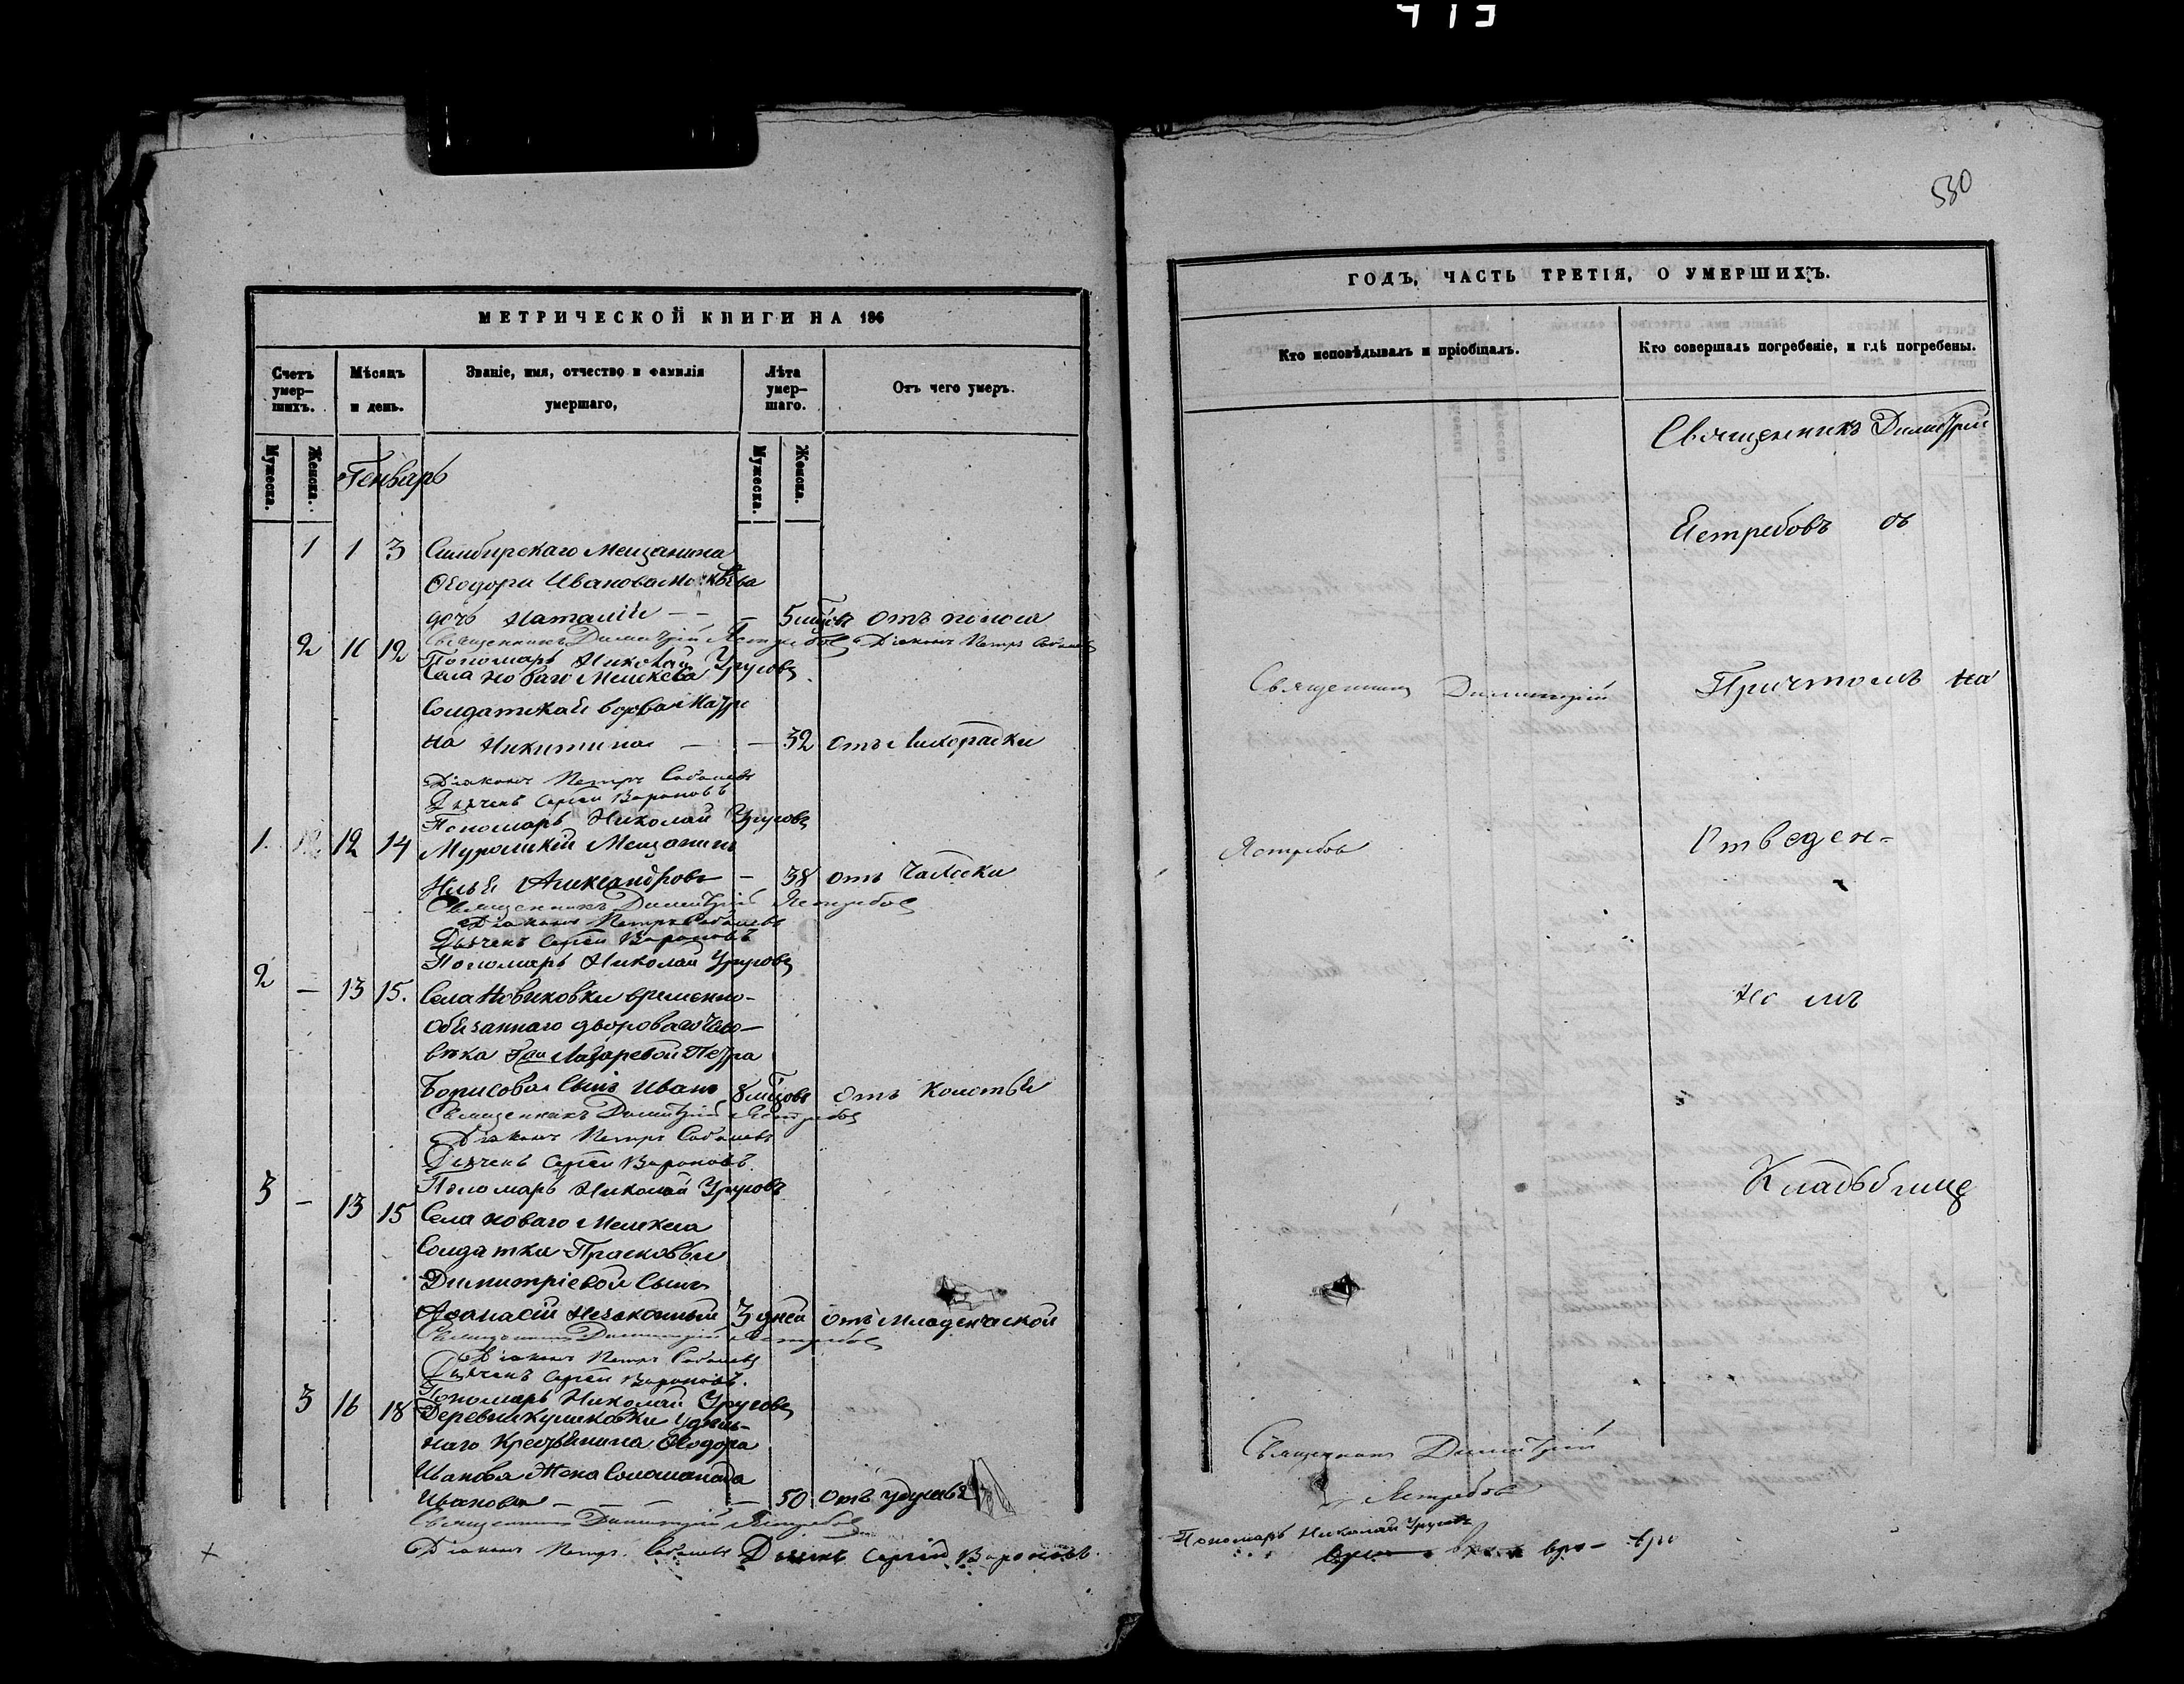 530
МЕТРИЧЕСКОЙ КНИГИ НА 186
Счетъ умер-шихъ.
Мѣсяцъ и день.
Званіе, имя, отчество и фамилія умершаго,
Лѣта умер-шаго.
Отъ чего умеръ.
Мужеска.
Женска.
Мужеска.
Женска.
Генварь
1 1 3 Симбирскаго Мещанина
Ѳеодора Иванова
дочь Наталія — — — 5 мцовъ отъ поноса
Священникъ Димитрій Ястребовъ Діаконъ Петръ Соболевъ
Пономарь Николай Урусовъ
2 10 12 Села Новаго Мелекеса
Солдатская вдова Матре
на Никитина — — 32 отъ Лихорадки
Діаконъ Петръ Соболевъ
Дьячекъ Сергей Вороновъ
Пономарь Николай Урусовъ
1 12 14 Муромскій Мещанинъ
Илья Александровъ — 38 отъ Чахотки
Священникъ Димитрій Ястребовъ
Діаконъ Петръ Соболевъ
Дьячекъ Сергей Вороновъ
Пономарь Николай Урусовъ
2 — 13 15. Села Новиковки временно-
обязаннаго двороваго чело-
вѣка Лазаревой Петра
Борисова Сынъ Иванъ 8 мцовъ отъ Колотья
Священникъ Димитрій Ястребовъ
Діаконъ Петръ Соболевъ
Дьячекъ Сергей Вороновъ.
Пономарь Николай Урусовъ
3 — 13 15 Села Новаго Мелекеса
Солдатки Прасковьи
Димитріевой Сынъ
Аѳанасій Незаконный 3 дней отъ Младенческой
Священникъ Димитрій Ястребовъ
Діаконъ Петръ Соболевъ
Дьячекъ Сергей Вороновъ.
Пономарь Николай Урусовъ
3 16 18 Деревни Кулиховки Удѣль-
наго Крестьянина Ѳеодора
Иванова Жена Соломанида
Иванова — — — — 50 отъ удушья
Священникъ Димитрій Ястребовъ
Діаконъ Петръ Соболевъ Дьячекъ Сергей Вороновъ.
ГОДЪ, ЧАСТЬ ТРЕТІЯ, О УМЕРШИХЪ.
Кто исповѣдывалъ и пріобщалъ.
Кто совершалъ погребеніе, и гдѣ погребены.
Священникъ Димитрій
Ястребовъ съ
Священникъ Димитрій
Причтомъ на
Ястребовъ
Отведен-
но мъ
Кладьбище
Священникъ Димитрій
Ястребовъ
Пономарь Николай Урусовъ